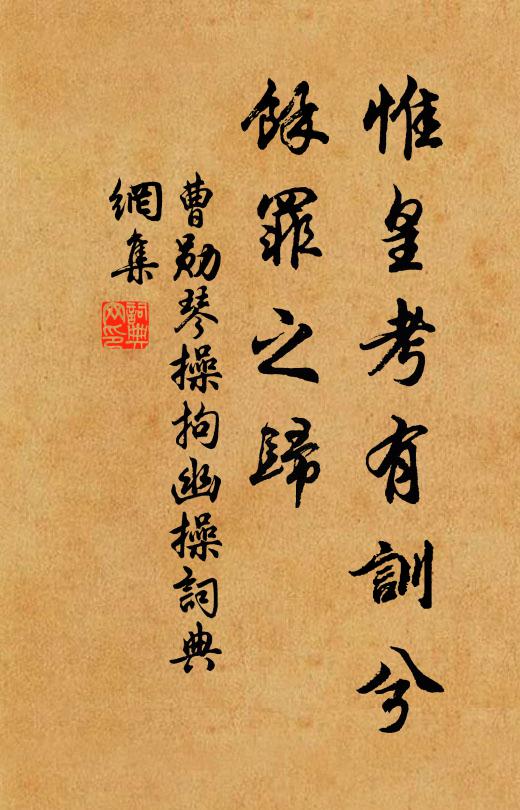 惟皇考有訓兮
餘罪之歸
曹勛琴操拘幽操詞典
網集
詞典